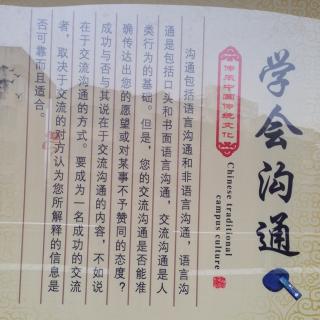 学会沟通
传承中国传统文化
Chinese traditional
campus culture
沟通包括语言沟通和非语言沟通，语言沟
通是包括口头和书面语言沟通，交流沟通是人
类行为的基础。但是，您的交流沟通是否能准
确传达出您的愿望或对某事不予赞同的态度？
成功与否与其说在于交流沟通的内容，不如说
在于交流沟通的方式。要成为一名成功的交流
者，取决于交流的对方认为您所解释的信息是
否可靠而且适合。